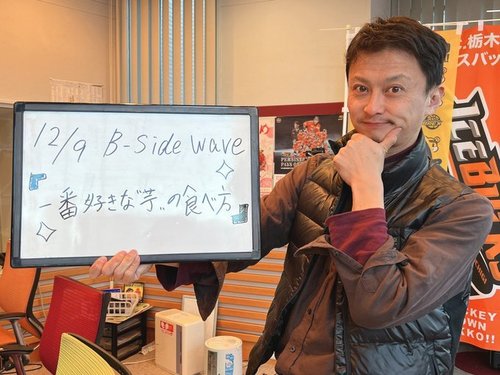 12/9 B-side wave
一番好きな"芋"の食べ方
栃木
スバッ
ICEBUCKS
PERSIST
CKEY
OWN
KKO!!